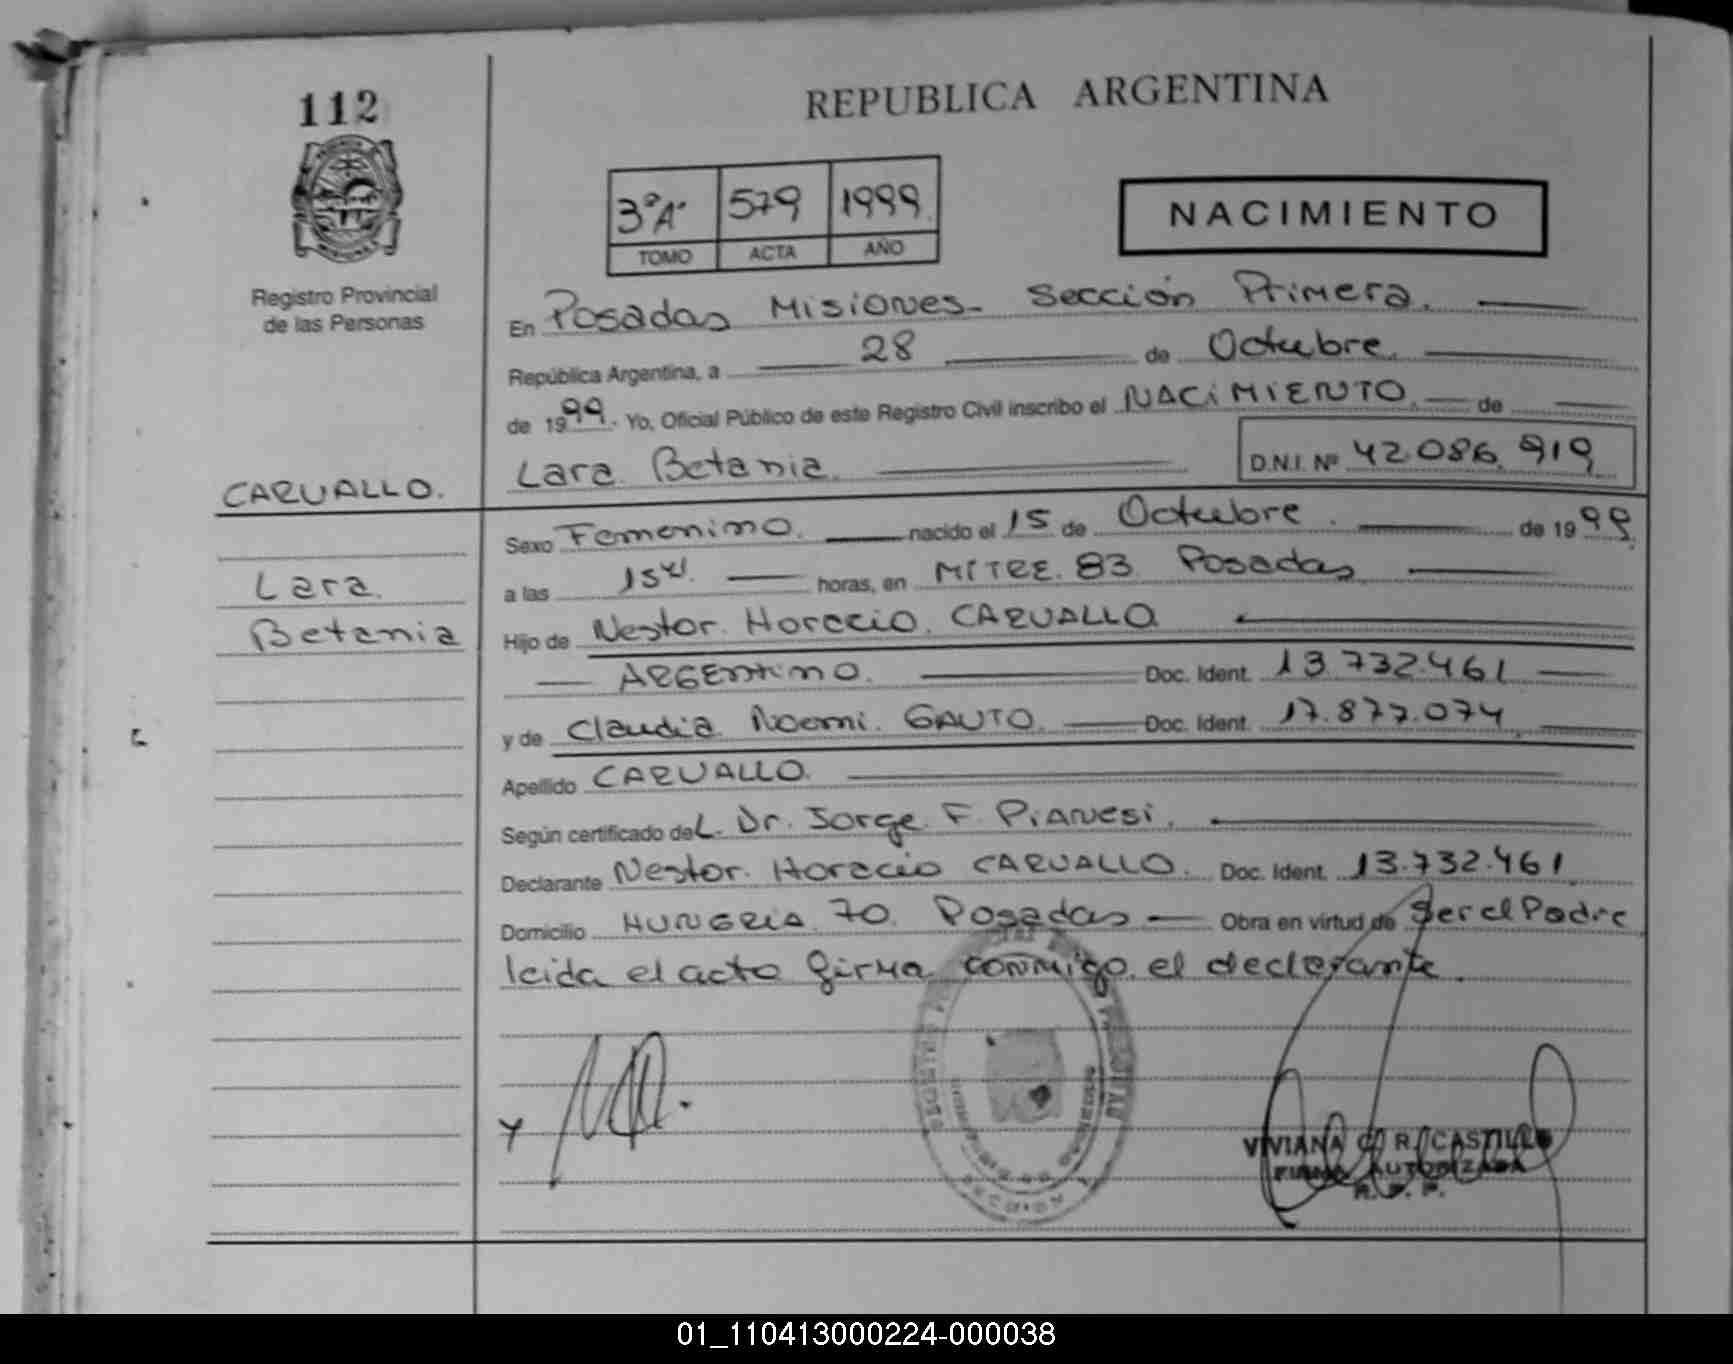 112
REPUBLICA ARGENTINA
3ºA 579 1999
TOMO ACTA AÑO
NACIMIENTO
Registro Provincial
de las Personas
En Posadas Misiones- Sección Primera.
República Argentina, a 28 de Octubre.
de 1999. Yo, Oficial Público de este Registro Civil inscribo el NACIMIENTO. de
Lara Betania. D.N.I. Nº 42.086.919
CARVALLO.
Sexo Femenino. nacido el 15 de Octubre. de 1999
Lara
a las horas, en MITRE. 83. Posadas
Betania
Hijo de Nestor. Horacio. CARVALLO.
ARGENTINO. Doc. Ident. 13.732.461
y de Claudia Noemi. GAUTO. Doc. Ident. 17.877.074
Apellido CARVALLO.
Según certificado deL. Dr. Jorge. F. PiANesi.
Declarante Nestor. Horacio CARVALLO. Doc. Ident. 13.732.461
Domicilio HUNGRIA 70. Posadas Obra en virtud de Ser el Padre
leida el acto firma conmigo. el declarante.
VIVIANA R. CASTILLO
FIRMA AUTORIZADA
R. P. P.
01_110413000224-000038